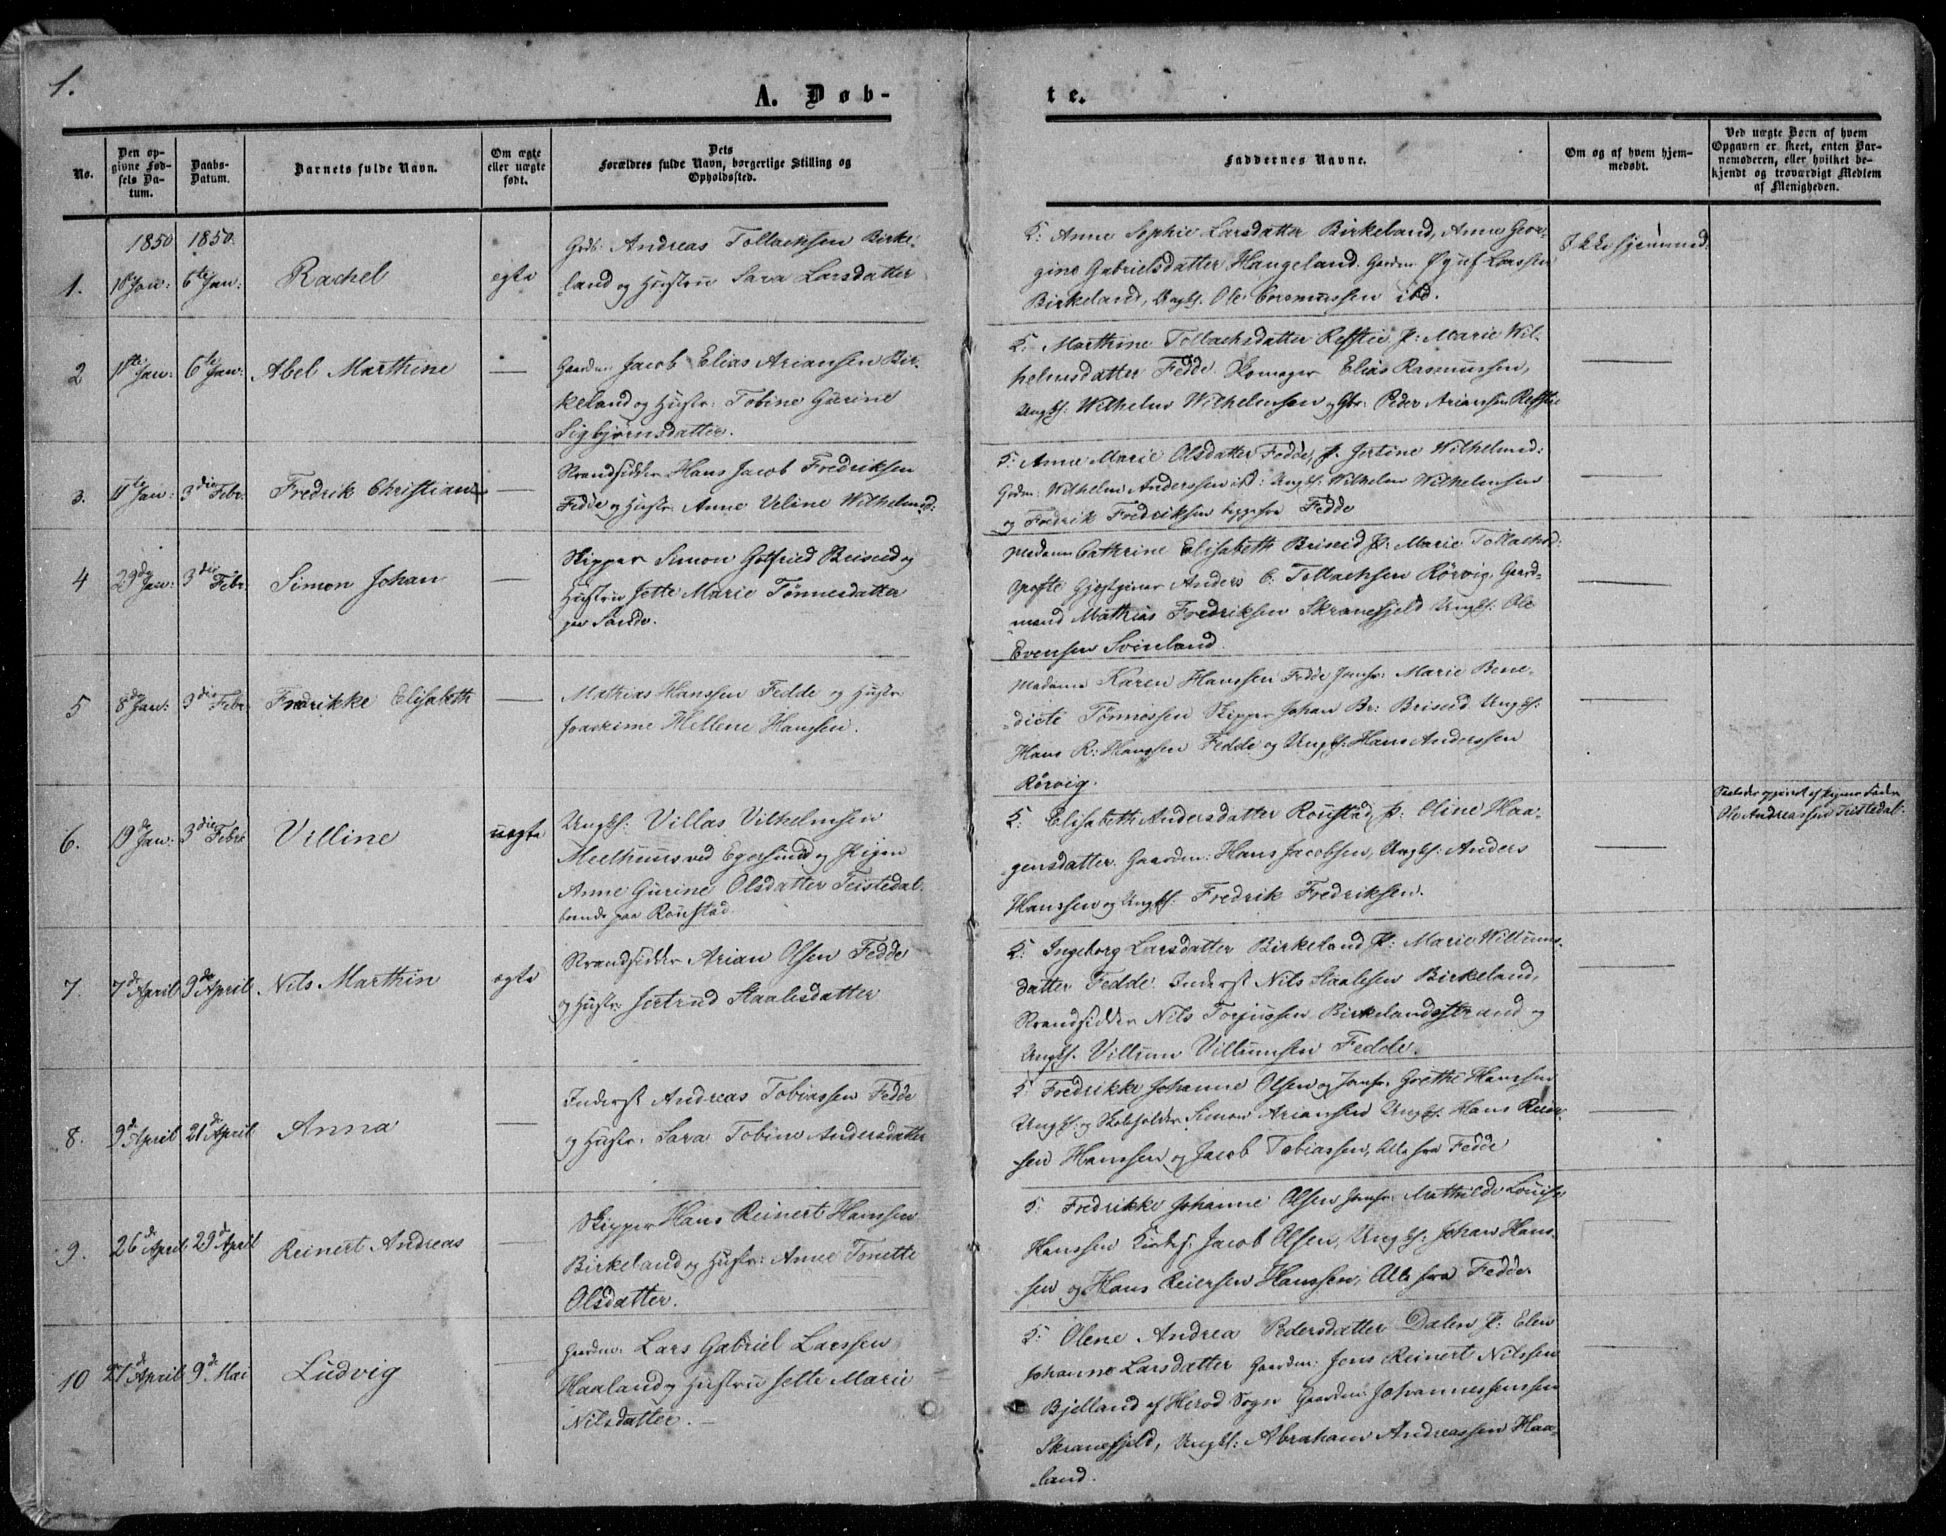 1.
A. Døb-
te.
No.
Den op-
givne Fød-
sels Da-
tum.
Daabs-
Datum.
Barnets fulde Navn.
Om ægte
eller uægte
født.
Dets
Forældres fulde Navn, borgerlige Stilling og
Opholdssted.
Faddernes Navne.
Om og af hvem hjem-
medøbt.
Ved uægte Børn af hvem
Opgaven er skeet, enten Bar-
nemoderen, eller hvilket be-
kjendt og troværdigt Medlem
af Menigheden.
1850 1850
1.
1st Jan: 6te Jan:
Rachel
egte
Grdb: Andreas Tollachsen Birke-
land og Hustru Sara Larsdatter
K: Anne Sophie Larsdatter Birkeland, Anne Geor-
gine Gabrielsdatter Haugeland. Gaardm: Larssen
Birkeland, Ungk: Ole Enemussen ibd.
Ikke hjemmed:
2
1ste Jan: 6te Jan:
Abel Marthine
—
Gaardm: Jacob Elias Ariansen Bir-
keland og Hustr: Tobine Gurine
Sigbjørnsdatter.
K: Marthine Tollachsdatter Refstie, P: Marie Wil-
helmsdatter Fedde. Skomager Elias Rasmussen,
Ungk: Wilhelm Wilhelmsen og Gbr: Peder Ariansen Refstie
—
3.
11te Jan: 3die Febr:
Fredrik Christian
—
Strandsidder Hans Jacob Fredriksen
Fedde og Hustr: Anne Veline Wilhelmsd:
K: Anne Marie Olsdatter Fedde, P. Jertine Wilhelmsd:
Grdm: Wilhelm Anderssen ibd: Ungk: Wilhelm Wilhelmsen
og Fredrik Fredriksen begge fra Fedde
—
4
29de Jan: 3die Febr:
Simon Johan
—
Skipper Simon Gotfried Briseid og
Hustru Jette Marie Tønnesdatter
paa Sande.
Madame Cathrine Elisabeth Briseid P: Marie Tollachsd:
Gjestgiver Anders C. Tollachsen Rørvig, Gaard-
mand Mathias Fredriksen Skranefjeld Ungk: Ole
Evensen Svinland.
—
5
8de Jan: 3die Febr:
Fredrikke Elisabeth
—
Mathias Hanssen Fedde og Hustr
Joackime Hellene Hanssen.
Madame Karen Hanssen Fedde Jomfr: Marie Bene-
dicte Tønnessen Skipper Johan Br: Briseid Ungk:
Hans R: Hanssen Fedde og Ungk: Hans Anderssen
Rørvig.
—
6.
19de Jan: 3die Febr
Villine
uegte
Ungk: Villas Vilhelmsen
Meelhuus ved Egersund og Pigen
Anne Gurine Olsdatter Teistedal
boende paa Rouestad.
K: Elisabeth Andersdatter Rouestad, P: Oline Haa-
gensdatter. Gaardm: Hans Jacobsen, Ungk: Anders
Hanssen og Ungk: Fredrik Fredriksen.
—
opgivet af Pigens Fader
Ole Andreassen Teistedal.
7.
7de April 9de April
Nils Marthin
egte
Strandsidder Arian Olsen Fedde
og Hustr: Jertrud Staalesdatter
K: Ingeborg Larsdatter Birkeland P: Marie Willums-
datter Fedde. Inderst Nils Staalesen Birkeland,
Strandsidder Nils Torjussen Birkelandsstrand og
Ungk: Villum Villumsen Fedde.
—
8.
9de April 21de April
Anna
Inderst Andreas Tobiassen Fedde
og Hustr: Sara Tobine Andersdatter
K Fredrikke Johanne Olsen og Jomfr: Grethe Hanssen
Ungk: og Skoleholder Simon Ariansen Ungk: Hans Reier-
sen Hanssen og Jacob Tobiassen, Alle fra Fedde
—
9.
26de April 29de April
Reinert Andreas
—
Skipper Hans Reinert Hanssen
Birkeland og Hustr: Anne Tonette
Olsdatter.
K: Fredrikke Johanne Olsen Jomfr: Mathilde Louise
Hanssen Kirkes: Jacob Olsen, Ungk: Johan Hans-
sen og Hans Reiersen Hanssen, Alle fra Fedde.
—
10
27de April 9de Mai
Ludvig
—
Gaardm: Lars Gabriel Larssen
Haaland og Hustru Jette Marie
Nilsdatter. —
K: Olene Andrea Pedersdatter Dalen P: Elen
Johanne Larsdatter Gaardm: Jens Reinert Nilssen
Bjelland af Herod Sogn Gaardm: Johannes Jenssen
Skranefjeld, Ungk: Abraham Andreassen Haa-
land.
—